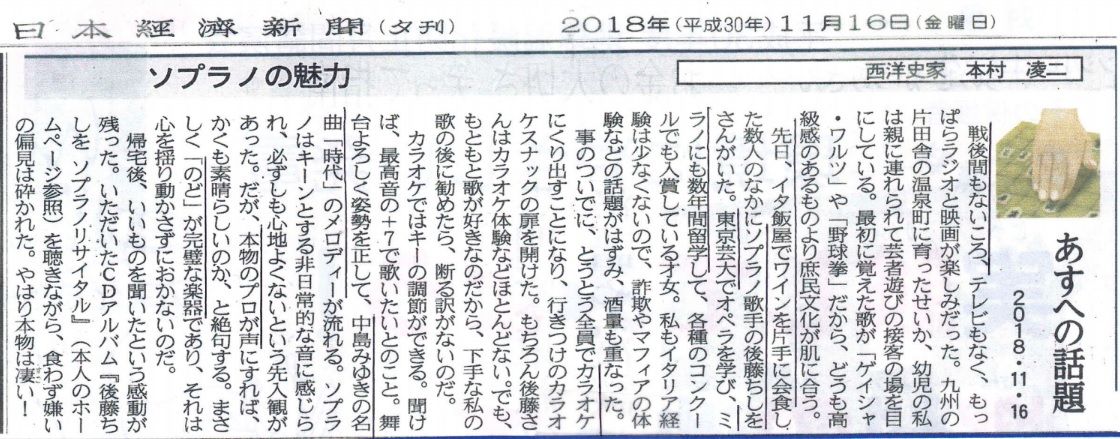 日本經濟新聞(夕刊) 2018年(平成30年)11月16日(金曜日)
ソプラノの魅力
西洋史家 本村 凌二
あすへの話題
2018・11・16
戦後間もないころ、テレビもなく、もっ
ぱらラジオと映画が楽しみだった。九州の
片田舎の温泉町に育ったせいか、幼児の私
は親に連れられて芸者遊びの接客の場を目
にしている。最初に覚えた歌が「ゲイシャ
・ワルツ」や「野球拳」だから、どうも高
級感のあるものより庶民文化が肌に合う。
先日、イタ飯屋でワインを片手に会食し
た数人のなかにソプラノ歌手の後藤ちしを
さんがいた。東京芸大でオペラを学び、ミ
ラノにも数年間留学して、各種のコンクー
ルでも入賞している才女。私もイタリア経
験は少なくないので、詐欺やマフィアの体
験などの話題がはずみ、酒量も重なった。
事のついでに、とうとう全員でカラオケ
にくり出すことになり、行きつけのカラオ
ケスナックの扉を開けた。もちろん後藤さ
んはカラオケ体験などほとんどない。でも、
もともと歌が好きなのだから、下手な私の
歌の後に勧めたら、断る訳がないのだ。
カラオケではキーの調節ができる。聞け
ば、最高音の+7で歌いたいとのこと。舞
台よろしく姿勢を正して、中島みゆきの名
曲「時代」のメロディーが流れる。ソプラ
ノはキーンとする非日常的な音に感じら
れ、必ずしも心地よくないという先入観が
あった。だが、本物のプロが声にすれば、
かくも素晴らしいのか、と絶句する。まさ
しく「のど」が完璧な楽器であり、それは
心を揺り動かさずにおかないのだ。
帰宅後、いいものを聞いたという感動が
残った。いただいたCDアルバム『後藤ち
しを ソプラノリサイタル』(本人のホー
ムページ参照)を聴きながら、食わず嫌い
の偏見は砕かれた。やはり本物は凄い!